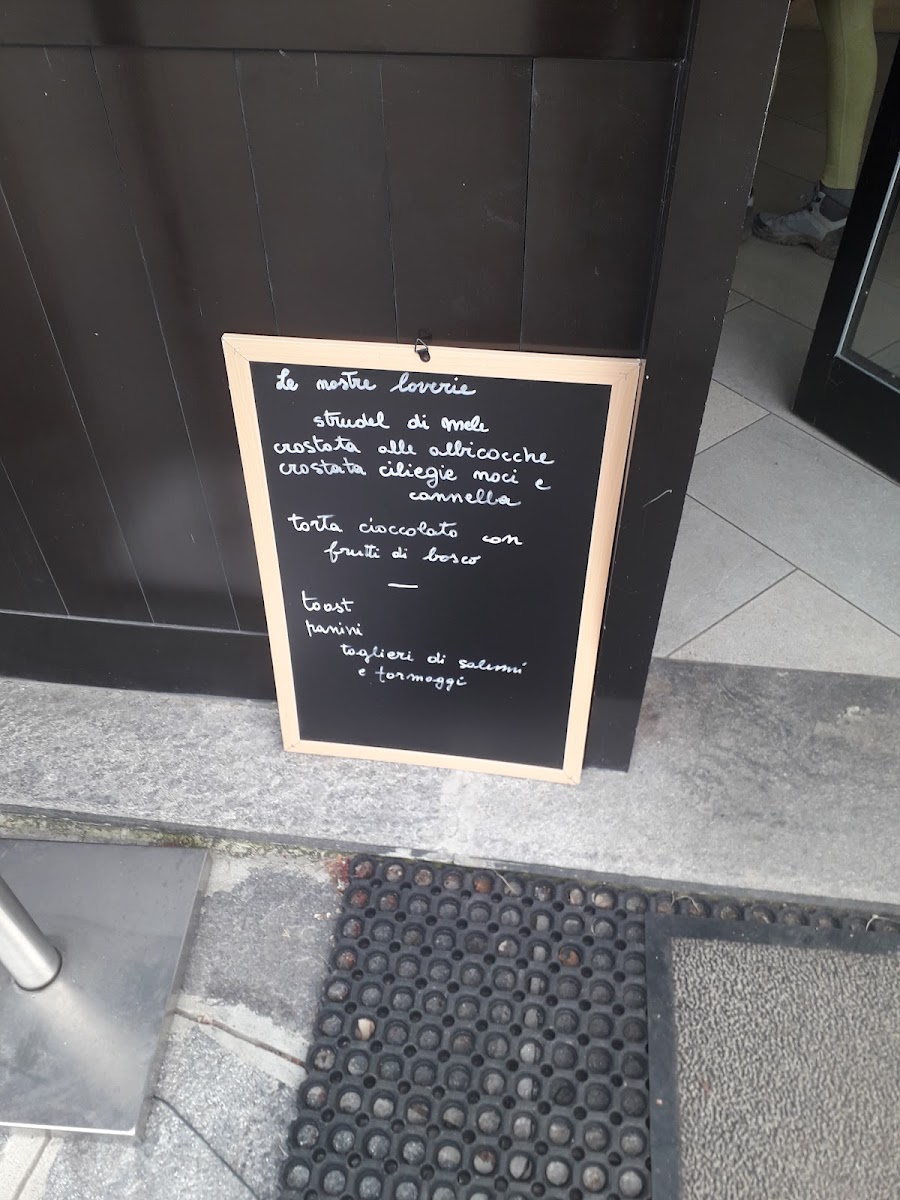 Le nostre loverie
strudel di mele
crostata alle albicocche
crostata ciliegie noci e
cannella
torta cioccolato con
frutti di bosco
—
toast
panini
taglieri di salumi
e formaggi